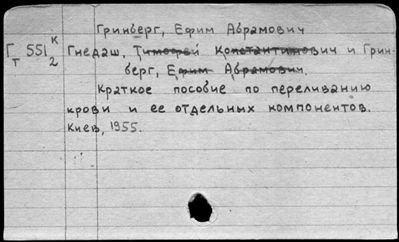 Гринберг, Ефим Абрамович
Г 551 к
т 2
Гнедаш, Тимофей Константинович и Грин-
берг, Ефим Абрамович.
Краткое пособие по переливанию
крови и ее отдельных компонентов.
Киев, 1955.